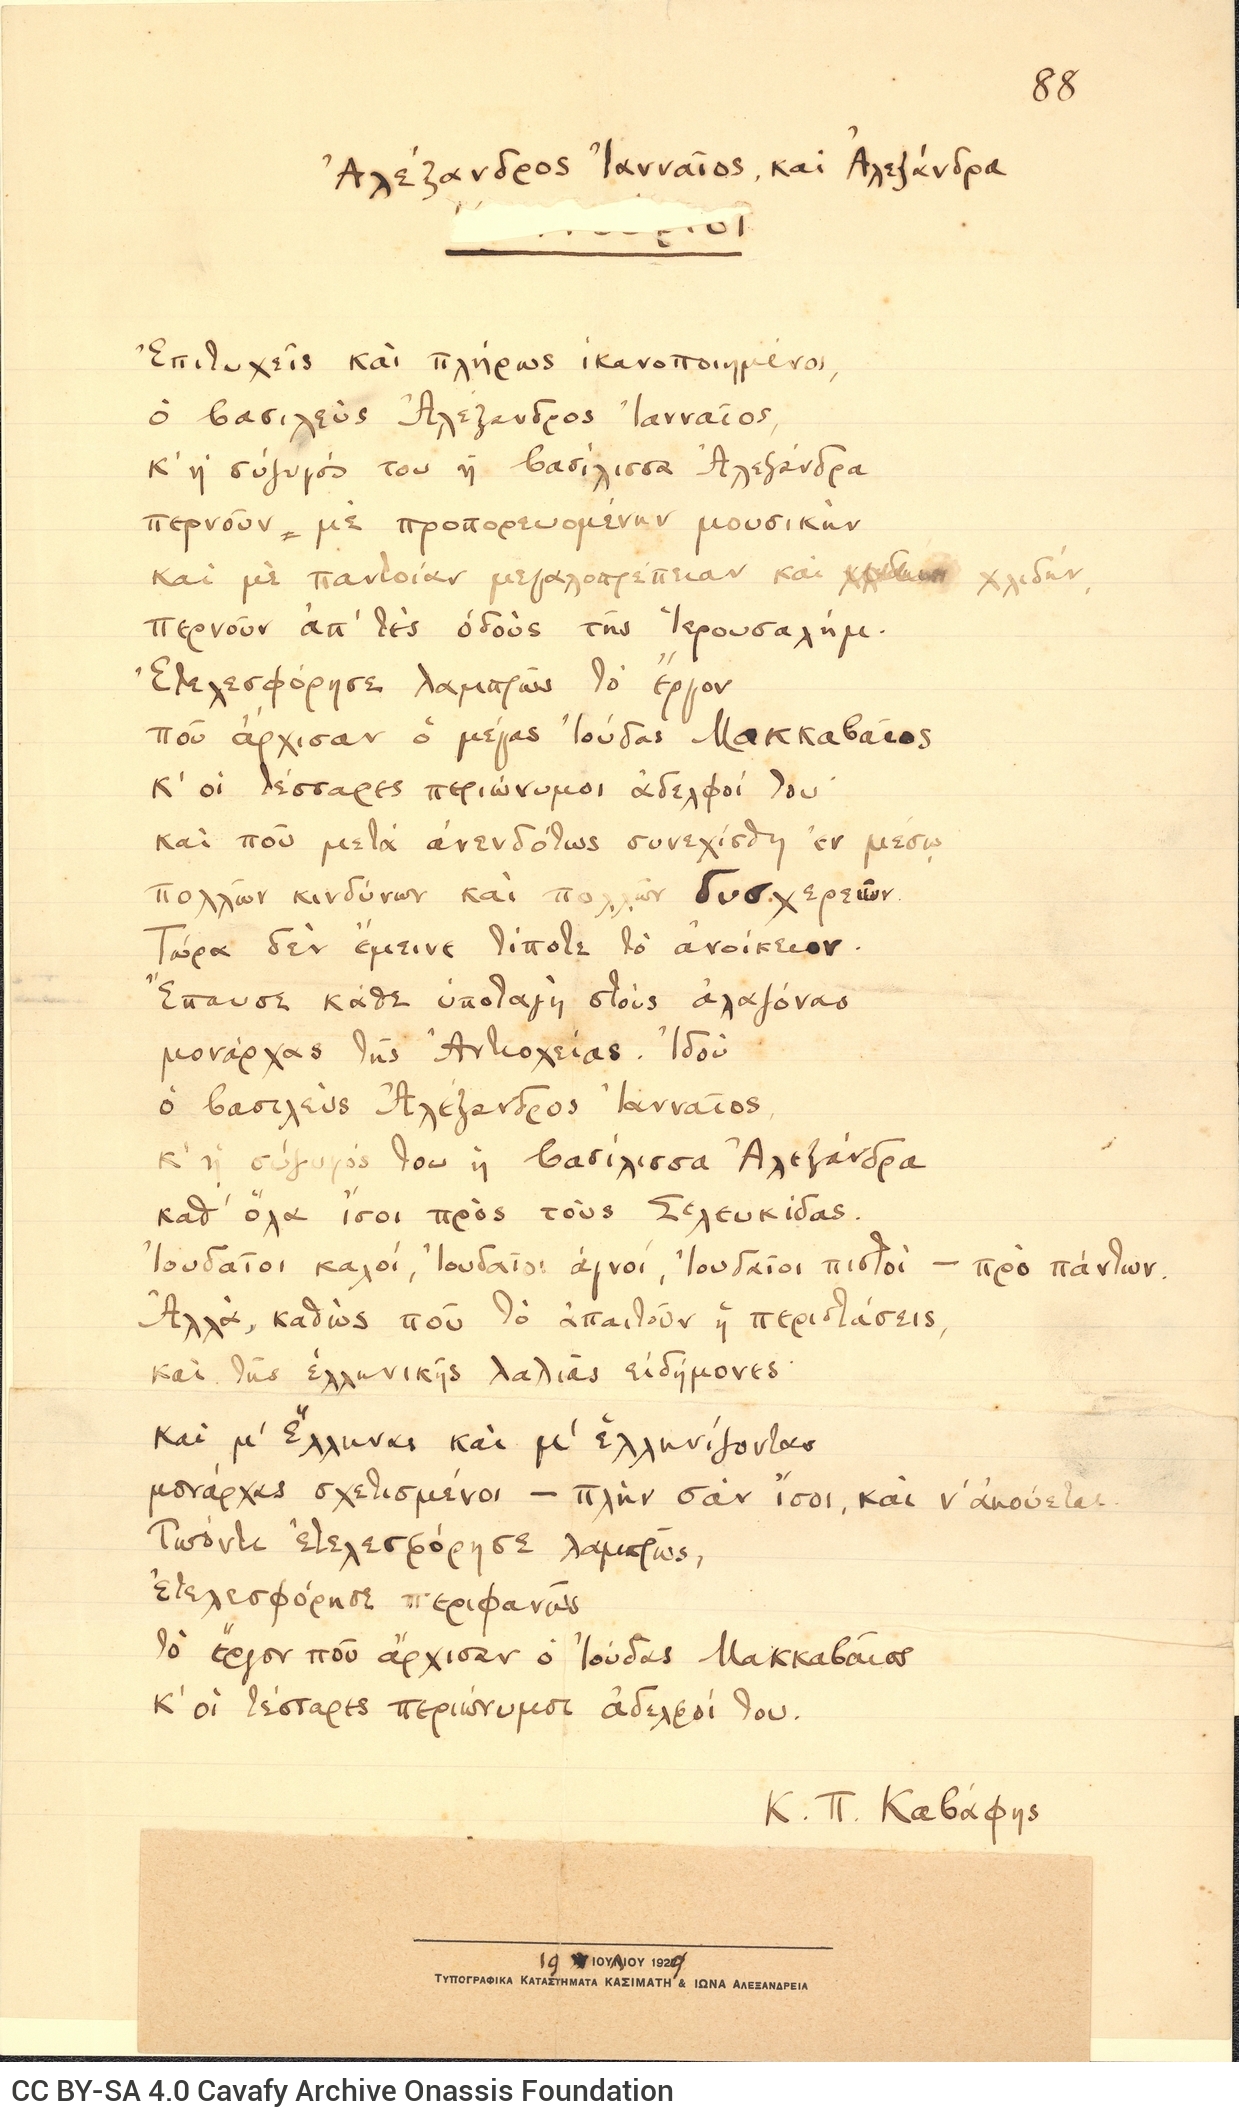 88
Ἀλέξανδρος Ἰανναῖος, καὶ Ἀλεξάνδρα
Ἐπιτυχεῖς καὶ πλήρως ἱκανοποιημένοι,
ὁ βασιλεὺς Ἀλέξανδρος Ἰανναῖος,
κ' ἡ σύζυγός του ἡ βασίλισσα Ἀλεξάνδρα
περνοῦν μὲ προπορευομένην μουσικὴν
καὶ μὲ παντοίαν μεγαλοπρέπειαν καὶ χλιδήν,
περνοῦν ἀπ' τὲς ὁδοὺς τῆς Ἱερουσαλήμ.
Ἐτελεσφόρησε λαμπρῶς τὸ ἔργον
ποῦ ἄρχισαν ὁ μέγας Ἰούδας Μακκαβαῖος
κ' οἱ τέσσαρες περιώνυμοι ἀδελφοί του·
καὶ ποῦ μετὰ ἀνενδότως συνεχίσθη ἐν μέσῳ
πολλῶν κινδύνων καὶ πολλῶν δυσχερειῶν.
Τώρα δὲν ἔμεινε τίποτε τὸ ἀνοίκειον.
Ἔπαυσε κάθε ὑποταγὴ στοὺς ἀλαζόνας
μονάρχας τῆς Ἀντιοχείας. Ἰδοὺ
ὁ βασιλεὺς Ἀλέξανδρος Ἰανναῖος,
κ' ἡ σύζυγός του ἡ βασίλισσα Ἀλεξάνδρα
καθ' ὅλα ἴσοι πρὸς τοὺς Σελευκίδας.
Ἰουδαῖοι καλοί, Ἰουδαῖοι ἁγνοί, Ἰουδαῖοι πιστοὶ — πρὸ πάντων.
Ἀλλά, καθὼς ποῦ τὸ ἀπαιτοῦν ᾑ περιστάσεις,
καὶ τῆς ἑλληνικῆς λαλιᾶς εἰδήμονες·
καὶ μ' Ἕλληνας καὶ μ' ἑλληνίζοντας
μονάρχας σχετισμένοι — πλὴν σὰν ἴσοι, καὶ ν' ἀκούεται.
Τωόντι ἐτελεσφόρησε λαμπρῶς,
ἐτελεσφόρησε περιφανῶς
τὸ ἔργον ποῦ ἄρχισαν ὁ Ἰούδας Μακκαβαῖος
κ' οἱ τέσσαρες περιώνυμοι ἀδελφοί του.
Κ. Π. Καβάφης
19 ΙΟΥΛΙΟΥ 1929
ΤΥΠΟΓΡΑΦΙΚΑ ΚΑΤΑΣΤΗΜΑΤΑ ΚΑΣΙΜΑΤΗ & ΙΩΝΑ ΑΛΕΞΑΝΔΡΕΙΑ
CC BY-SA 4.0 Cavafy Archive Onassis Foundation